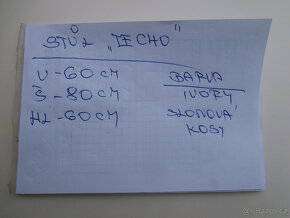 STŮL „TECHO"
V - 60 CM
Š - 80 CM
HL - 60 CM
BARVA
IVORY
„SLONOVÁ
KOSŤ